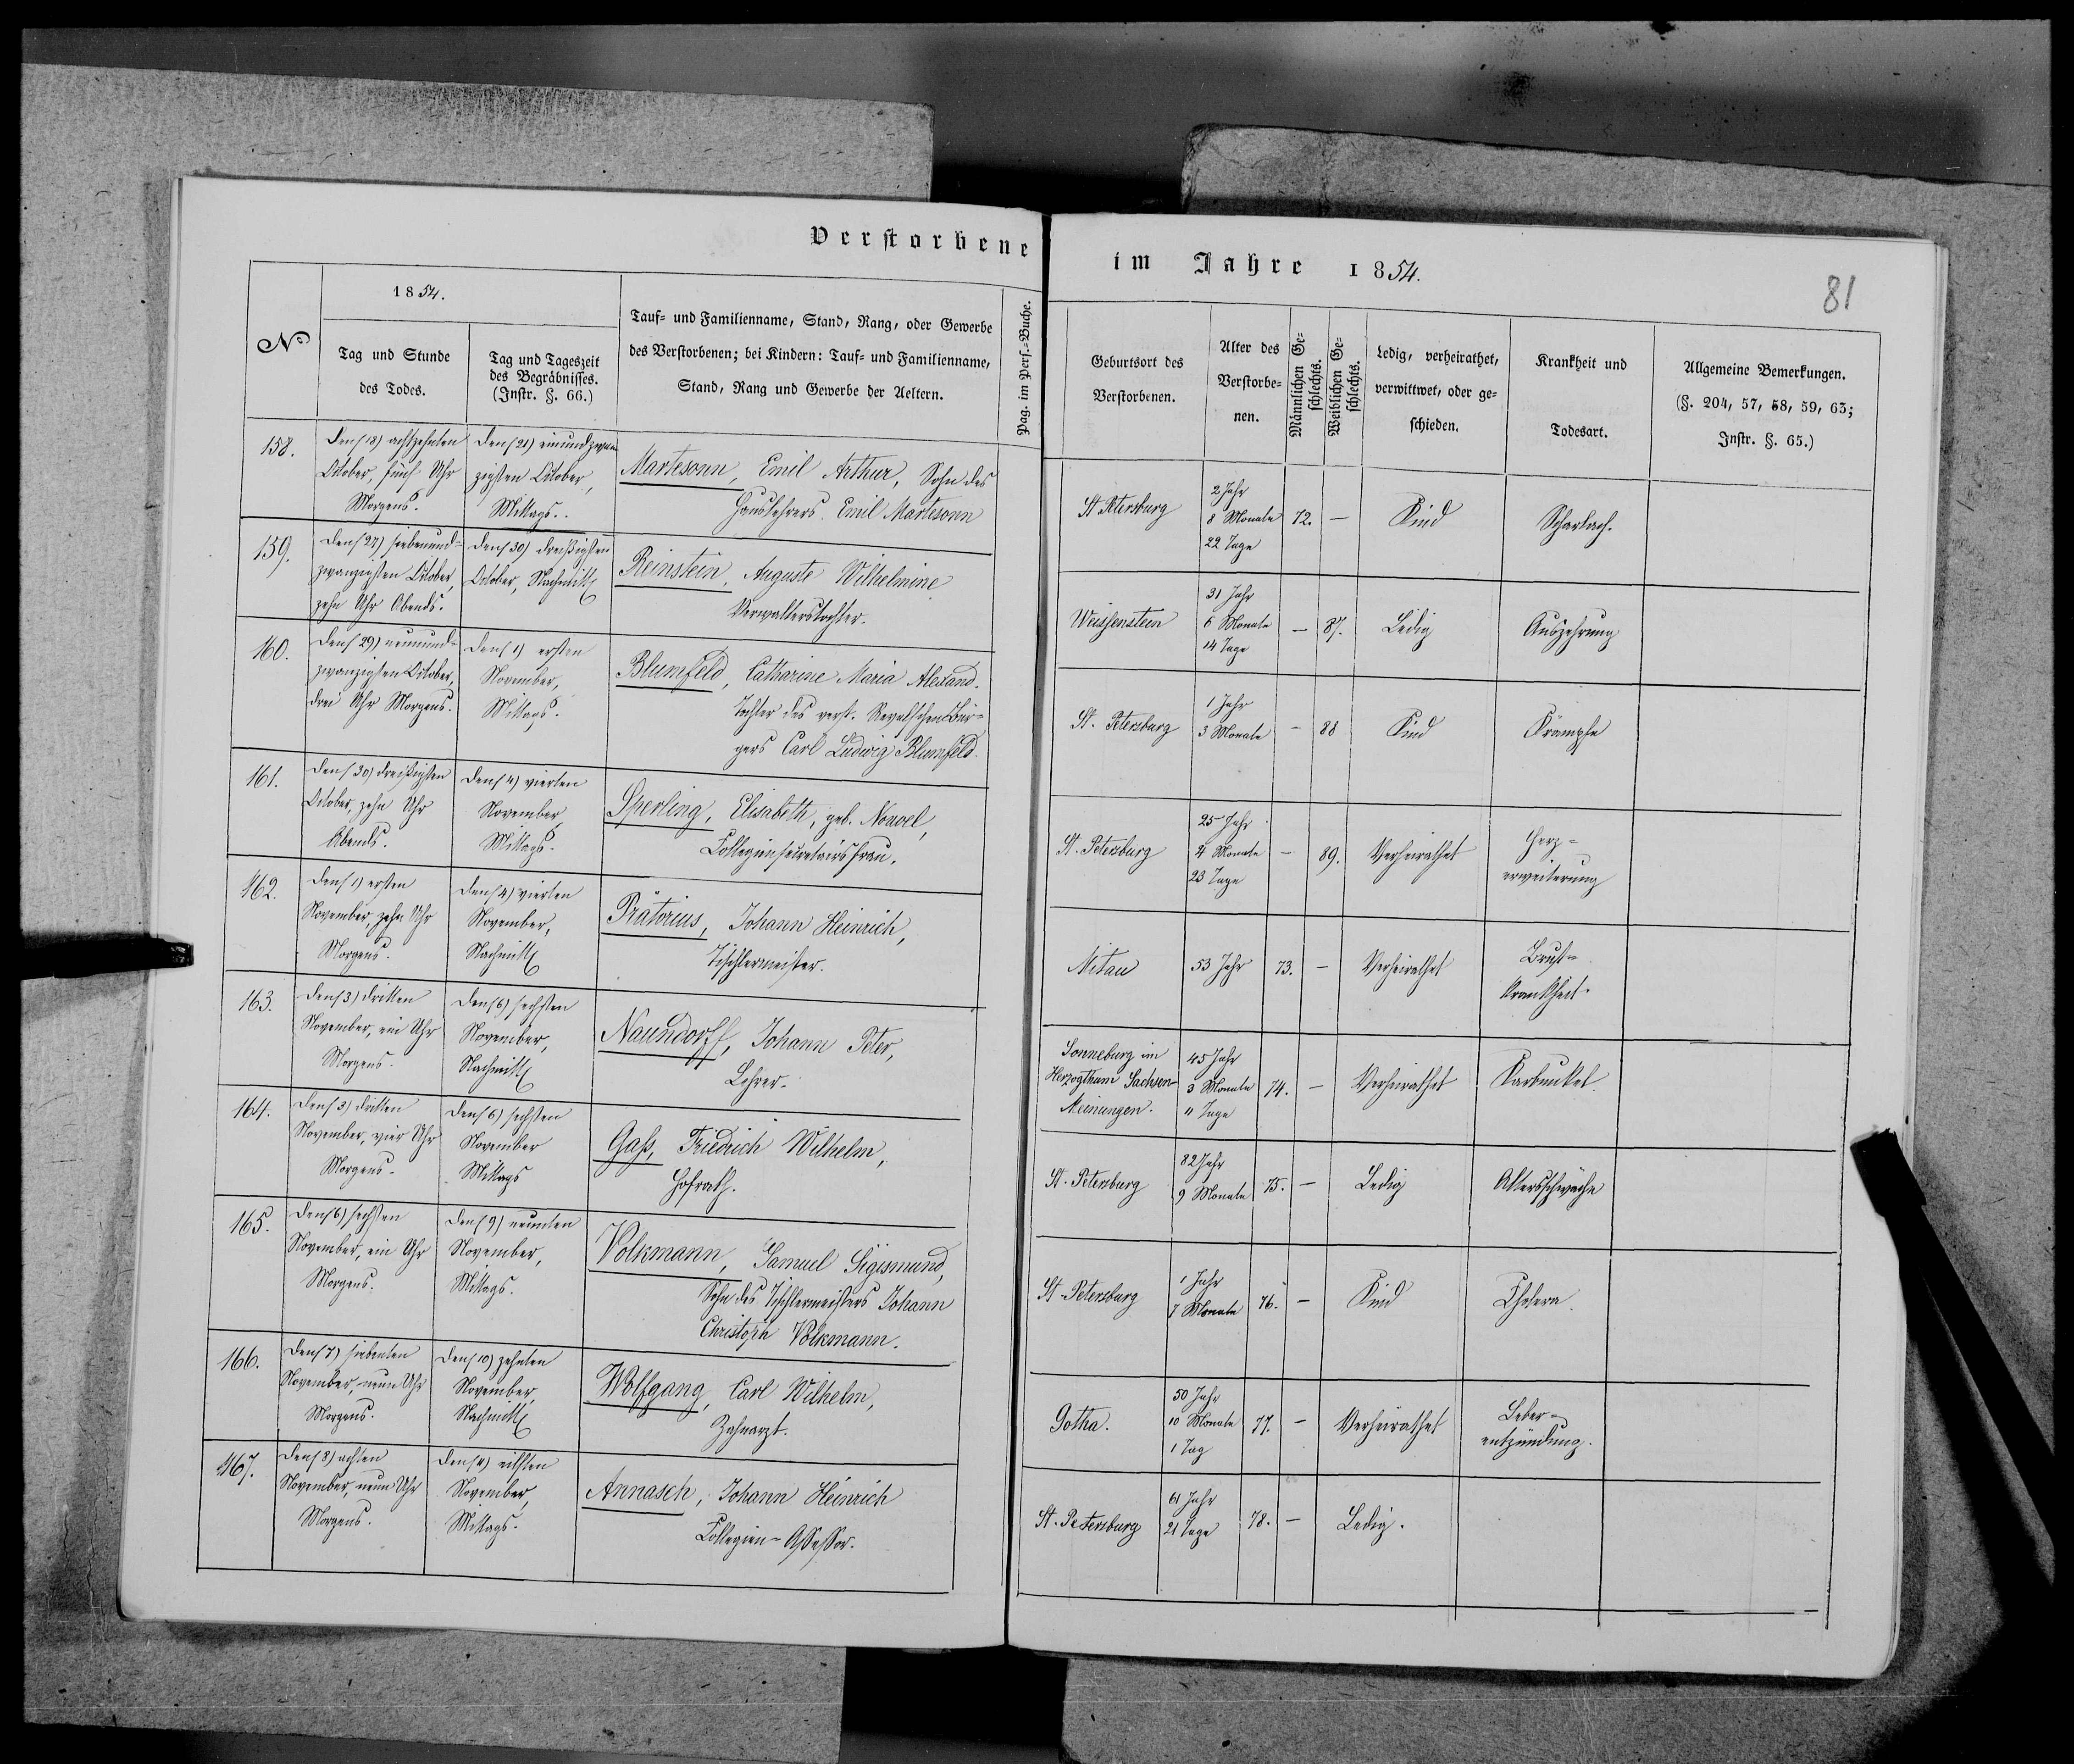 Verstorbene im Jahre 1854.
81
1854.
No
Tag und Stunde
des Todes.
Tag und Tageszeit
des Begräbnisses.
(Instr. §. 66.)
Tauf- und Familienname, Stand, Rang, oder Gewerbe
des Verstorbenen; bei Kindern: Tauf- und Familienname,
Stand, Rang und Gewerbe der Aeltern.
Pag. im Pers.-Buche.
Geburtsort des
Verstorbenen.
Alter des
Verstorbe-
nen.
Männlichen Ge-
schlechts.
Weiblichen Ge-
schlechts.
Ledig, verheirathet,
verwittwet, oder ge-
schieden.
Krankheit und
Todesart.
Allgemeine Bemerkungen.
(§. 204, 57, 58, 59, 63;
Instr. §. 65.)
158.
Den (18) achtzehnten
October, fünf Uhr
Morgens.
Den (21) einundzwan
zigsten October,
Mittags.
Martesonn, Emil Arthur, Sohn des
Hauslehrers Emil Martesonn
St Petersburg
2 Jahr
8 Monate
22 Tage
72.
—
Kind
Scharlach.
159.
Den (27) siebenund-
zwanzigsten October,
zehn Uhr Abends.
Den (30) dreißigsten
October, Nachmitt
Reinstein, Auguste Wilhelmine
Verwalterstochter.
Weissenstein
31 Jahr
6 Monate
14 Tage
—
87.
Ledig
Auszehrung
160.
Den (29) neunund-
zwanzigsten October,
drei Uhr Morgens.
Den (1) ersten
November,
Mittags.
Blumfeld, Catharine Maria Alexand.
Tochter des verst. Revalschen Bür-
gers Carl Ludwig Blumfeld.
St. Petersburg
1 Jahr
3 Monate
—
88
Kind
Krämpfe
161.
Den (30) dreißigsten
October, zehn Uhr
Abends.
Den (4) vierten
November,
Mittags.
Sperling, Elisabeth, geb.
Collegiensecretairs Frau.
St. Petersburg
25 Jahr
4 Monate
23 Tage
—
89.
Verheirathet
Herz-
erweiterung
162.
Den (1) ersten
November, zehn Uhr
Morgens.
Den (4) vierten
November,
Nachmitt
Prätorius, Johann Heinrich,
Tischlermeister.
Mitau
53 Jahr
73.
—
Verheirathet
Brust-
krankheit.
163.
Den (3) dritten
November, ein Uhr
Morgens.
Den (6) sechsten
November,
Nachmitt
Naundorff, Johann Peter,
Lehrer.
Sonneburg im
Herzogthum Sachsen-
Meinungen.
45 Jahr
3 Monate
11 Tage
74.
—
Verheirathet
Karbunkel.
164.
Den (3) dritten
November, vier Uhr
Morgens.
Den (6) sechsten
November
Mittags
Gaß, Friedrich Wilhelm,
Hofrath.
St. Petersburg
82 Jahr
9 Monate
75.
—
Ledig
Altersschwäche
165.
Den (6) sechsten
November, ein Uhr
Morgens.
Den (9) neunten
November,
Mittags.
Volkmann, Samuel Sigismund,
Sohn des Tischlermeisters Johann
Christoph Volkmann.
St. Petersburg
1 Jahr
7 Monate
76.
—
Kind
Cholera.
166.
Den (7) siebenten
November, neun Uhr
Morgens.
Den (10) zehnten
November,
Nachmitt
Wolfgang, Carl Wilhelm,
Zahnarzt.
Gotha.
50 Jahr
10 Monate
1 Tag
77.
—
Verheirathet
Leber-
entzündung.
167.
Den (8) achten
November, neun Uhr
Morgens.
Den (11) eilften
November,
Mittags.
Annasch, Johann Heinrich
Collegien-Assessor.
St. Petersburg
61 Jahr
21 Tage
78.
—
Ledig.